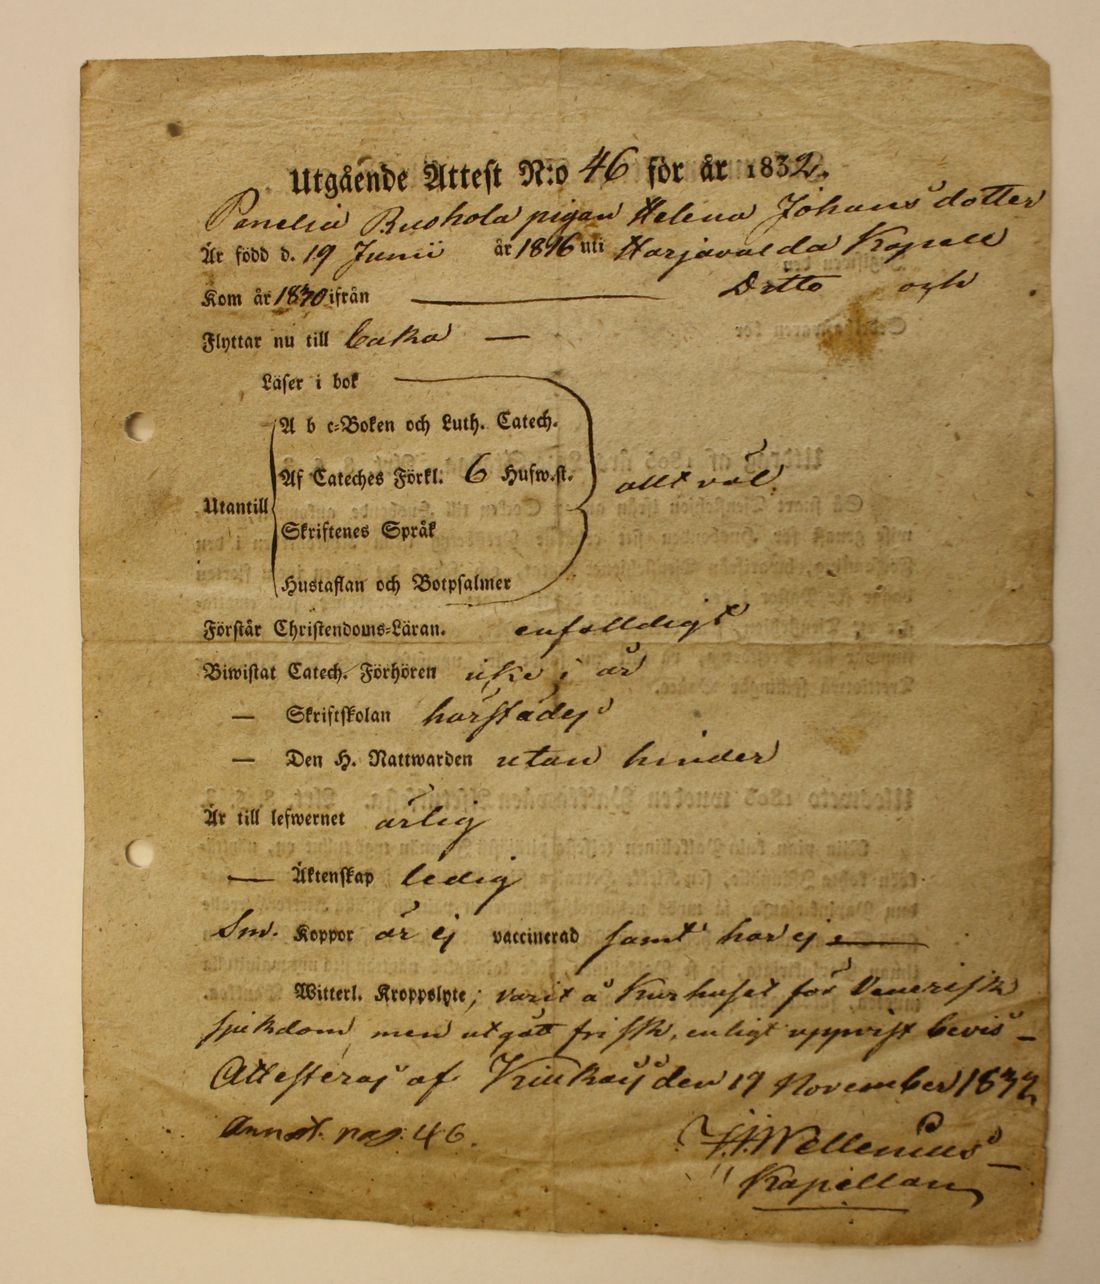 Utgående Attest N:o 46 för år 1832.
Panelia Buohola pigan Helena Johansdotter
Är född d. 19 Junii år 1816 uti Harjavalda Kapell
Kom år 1830 ifrån — Ditto och
Flyttar nu till —
Läser i bok
A b c-Boken och Luth. Catech.
Af Cateches Förkl. 6 Hufw.st. allt väl
Utantill
Skriftenes Språk
Hustaflan och Botpsalmer
Förstår Christendoms-Läran. enfalldigt
Biwistat Catech. Förhören icke i år
— Skriftskolan härstädes
— Den H. Nattwarden utan hinder
Är till lefwernet ärlig
— Äktenskap ledig
Sm. Koppor är ej vaccinerad samt har ej —
Witterl. Kroppslyte; varit å Kurhuset för Venerisk
sjukdom, men utgått frisk, enligt uppvist bevis —
Attesteras af Kiukais den 19 November 1832
Annot. pag. 46.
Wellenius
Kapellan